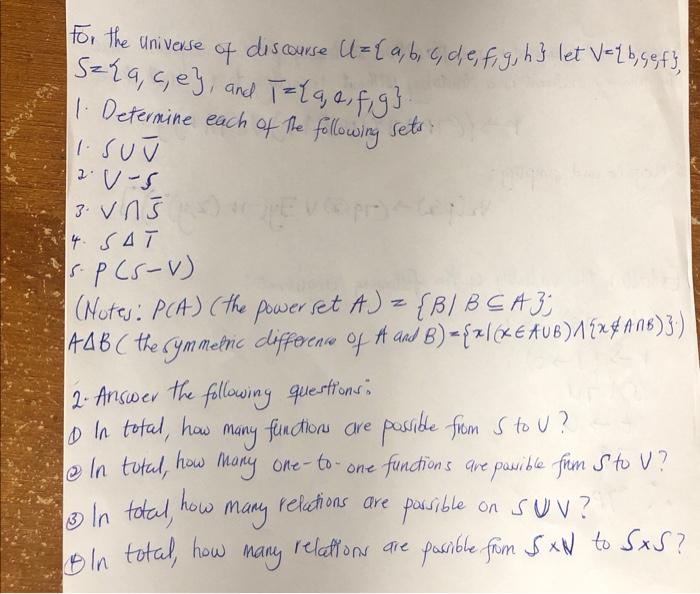 For the universe of discourse U={a,b,c,d,e,f,g,h} let V={b,c,e,f},
S={a,c,e}, and T={a,e,f,g}.
1. Determine each of the following sets:
1. S∪V̅
2. V-S
3. V∩S̅
4. S Δ T̅
5. P(S-V)
(Notes: P(A) (the power set A) = {B| B ⊆ A};
AΔB (the symmetric difference of A and B)={x|(x∈A∪B)∧(x∉A∩B)}.)
2. Answer the following questions:
① In total, how many functions are possible from S to V?
② In total, how many one-to-one functions are possible from S to V?
③ In total, how many relations are possible on S∪V?
④ In total, how many relations are possible from S×V to S×S?